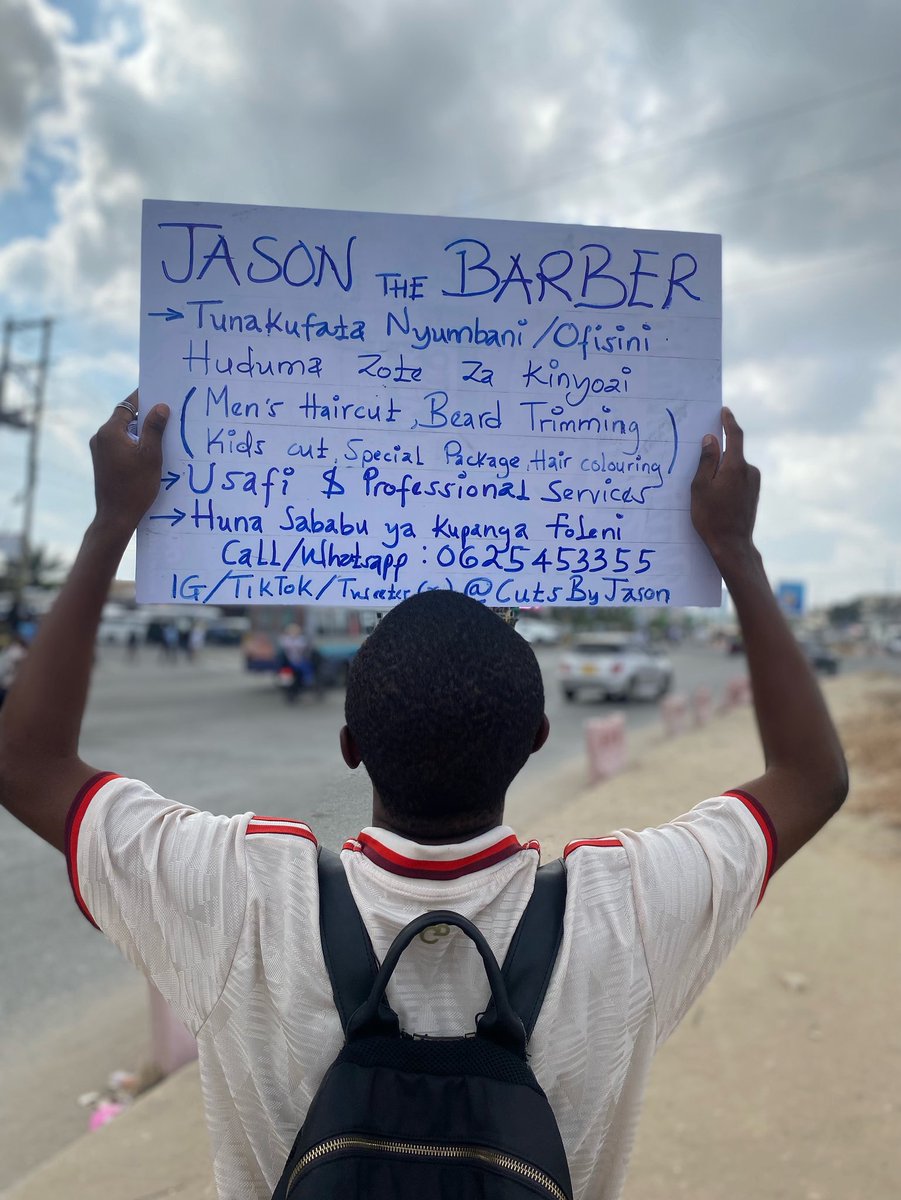 JASON THE BARBER
→ Tunakufata Nyumbani/Ofisini
Huduma Zote Za Kinyozi
(Men's Haircut, Beard Trimming
Kids cut, Special Package, Hair colouring)
→ Usafi $ Professional Services
→ Huna Sababu ya Kupanga foleni
Call/Whatsapp : 0625453355
IG/TikTok/Tweeter(x) @CutsByJason